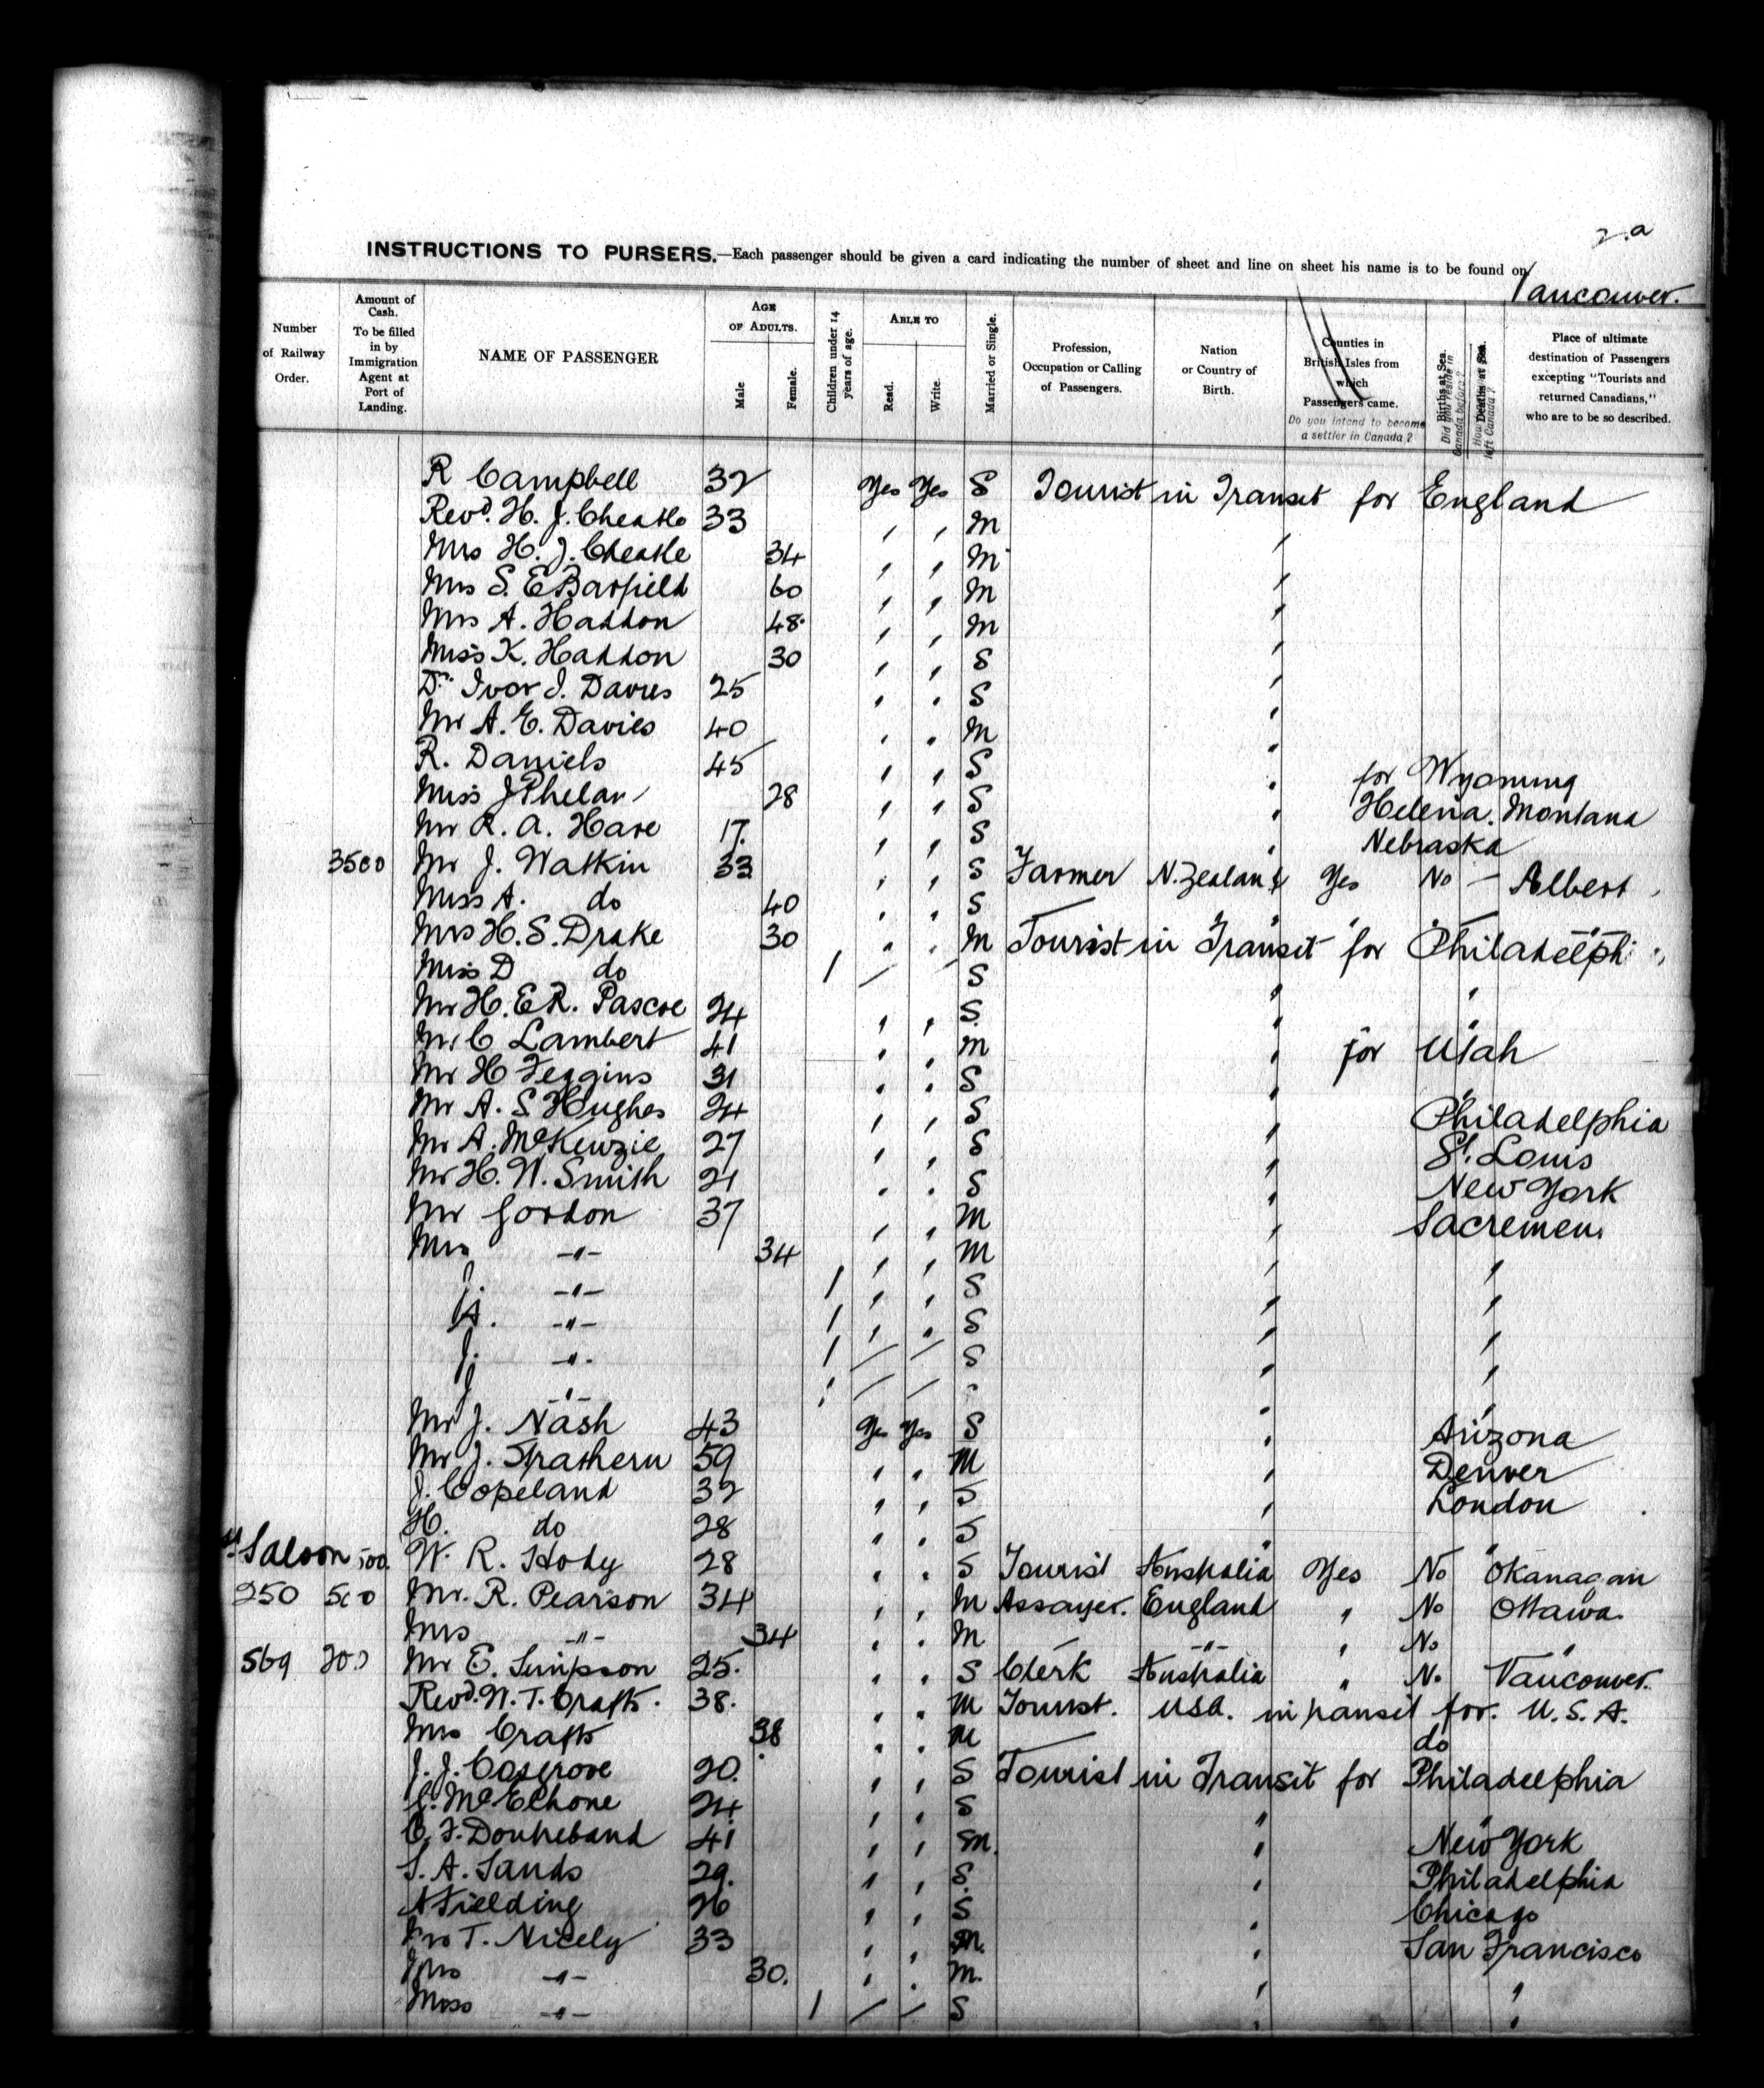 2.a
INSTRUCTIONS TO PURSERS.—Each passenger should be given a card indicating the number of sheet and line on sheet his name is to be found on
Vancouver.
Number of Railway Order.
Amount of Cash. To be filled in by Immigration Agent at Port of Landing.
NAME OF PASSENGER
AGE OF ADULTS.
Male
Female.
Children under 14 years of age.
ABLE TO
Read.
Write.
Married or Single.
Profession, Occupation or Calling of Passengers.
Nation or Country of Birth.
Counties in British Isles from which Passengers came.
Do you intend to become a settler in Canada?
Births at Sea.
Did you reside in Canada before?
Deaths at Sea.
left Canada?
Place of ultimate destination of Passengers excepting "Tourists and returned Canadians," who are to be so described.
R Campbell 32 Yes Yes S Tourist in Transit for England
Revd. H. J. Cheatle 33 " " M "
Mrs H. J. Cheatle 34 " " M "
Mrs S. E Barfield 60 " " M "
Mrs A. Haddon 48 " " M "
Miss K. Haddon 30 " " S "
Dr. Ivor J. Davies 25 " " S "
Mr A. E. Davies 40 " " M "
R. Daniels 45 " " S " for Wyoming
Miss J Phelan 28 " " S " Helena. Montana
Mr R. A. Hare 17. " " S " Nebraska
3500 Mr J. Watkin 33 " " S Farmer N. Zealand Yes No – Albert
Miss A. do 40 " " S — " "
Mrs H. S. Drake 30 " " M Tourist in Transit for Philadelphi
Miss D do 1 / / S " "
Mr H. E R. Pascoe 24 " " S. " "
Mr C Lambert 41 " " M " for Utah
Mr H Feggins 31 " " S " "
Mr A. S Hughes 24 " " S " Philadelphia
Mr A. McKenzie 27 " " S " St. Louis
Mr H. W. Smith 21 " " S " New York
Mr Gordon 37 " " M " Sacremen
Mrs -"- 34 " " M " "
J. -"- 1 " " S " "
A. -"- 1 " " S " "
J. -"- 1 / / S " "
J -"- / / " "
Mr J. Nash 43 Yes Yes S " Arizona
Mr J. Strathern 59 " " M " Denver
J. Copeland 32 " " S " London
H. do 28 " " S " "
Saloon 500. W. R. Hody 28 " " S Tourist Australia Yes No Okanagan
250 500 Mr. R. Pearson 34 " " M Assayer. England " No Ottawa.
Mrs -"- 34 " " M — -"- " No "
569 200 Mr E. Simpson 25. " " S Clerk Australia " No Vancouver.
Revd. W. T. Crafts. 38. " " M Tourist. USA. in transit for. U.S.A.
Mrs Crafts 38 " " M do
J. J. Cosgrove 20. " " S Tourist in Transit for Philadelphia
McElhone 24. " " S " "
C. F. 41 " " M. " New York
S. A. Sands 29. " " S. " Philadelphia
A Fielding 26 " " S " Chicago
T. Nicely 33 " " M. " San Francisco
Mrs -"- 30. " " M. " "
Miss -"- 1 / / S " "